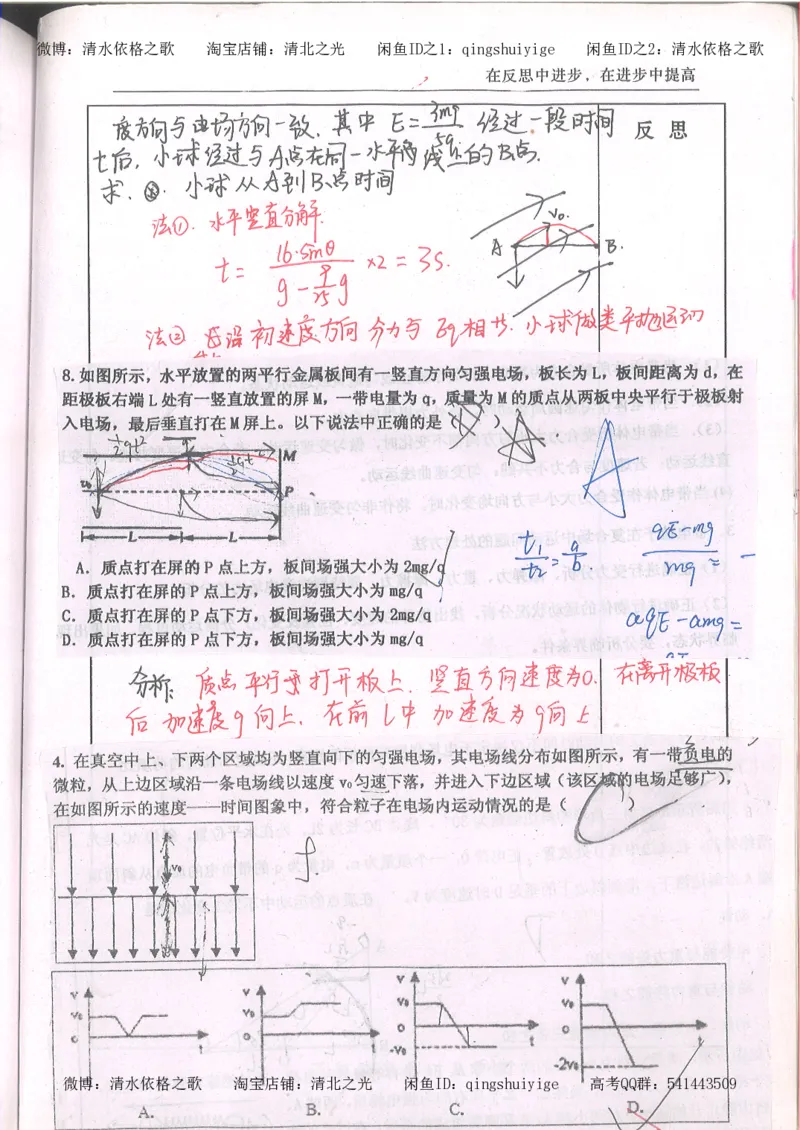 微博：清水依格之歌 淘宝店铺：清北之光 闲鱼ID之1：qingshuiyige 闲鱼ID之2：清水依格之歌
在反思中进步，在进步中提高
度方向与电场方向一致，其中 E=3mg/5q 经过一段时间
反思
t后，小球经过与A点在同一水平线上的B点.
求. 小球从A到B点时间
法①. 水平竖直分解.
t= 16·sinθ / g-9/25g ×2=3s.
V₀.
A B.
法② 沿初速度方向分力与Eq相等. 小球做类平抛运动
8. 如图所示，水平放置的两平行金属板间有一竖直方向匀强电场，板长为 L，板间距离为 d，在
距极板右端 L 处有一竖直放置的屏 M，一带电量为 q，质量为 M 的质点从两板中央平行于极板射
入电场，最后垂直打在 M 屏上。以下说法中正确的是（ ）
A
½gt²
½gt²
M
v₀
P
L L
A．质点打在屏的 P 点上方，板间场强大小为 2mg/q
B．质点打在屏的 P 点上方，板间场强大小为 mg/q
C．质点打在屏的 P 点下方，板间场强大小为 2mg/q
D．质点打在屏的 P 点下方，板间场强大小为 mg/q
t₁/t₂=a/b.
qE-mg
mg =
aqE-amg=
分析: 质点平行垂打开板上. 竖直方向速度为0. 在离开极板
后加速度g向上. 在前L中加速度为g向上
4. 在真空中上、下两个区域均为竖直向下的匀强电场，其电场线分布如图所示，有一带负电的
微粒，从上边区域沿一条电场线以速度 v₀匀速下落，并进入下边区域（该区域的电场足够广），
在如图所示的速度——时间图象中，符合粒子在电场内运动情况的是（ ）
v₀
v v₀ 0 t
v v₀ 0 t
v v₀ 0 -v₀ t
v v₀ 0 -2v₀ t
微博：清水依格之歌 淘宝店铺：清北之光 闲鱼ID：qingshuiyige 高考QQ群：541443509
A. B. C. D.